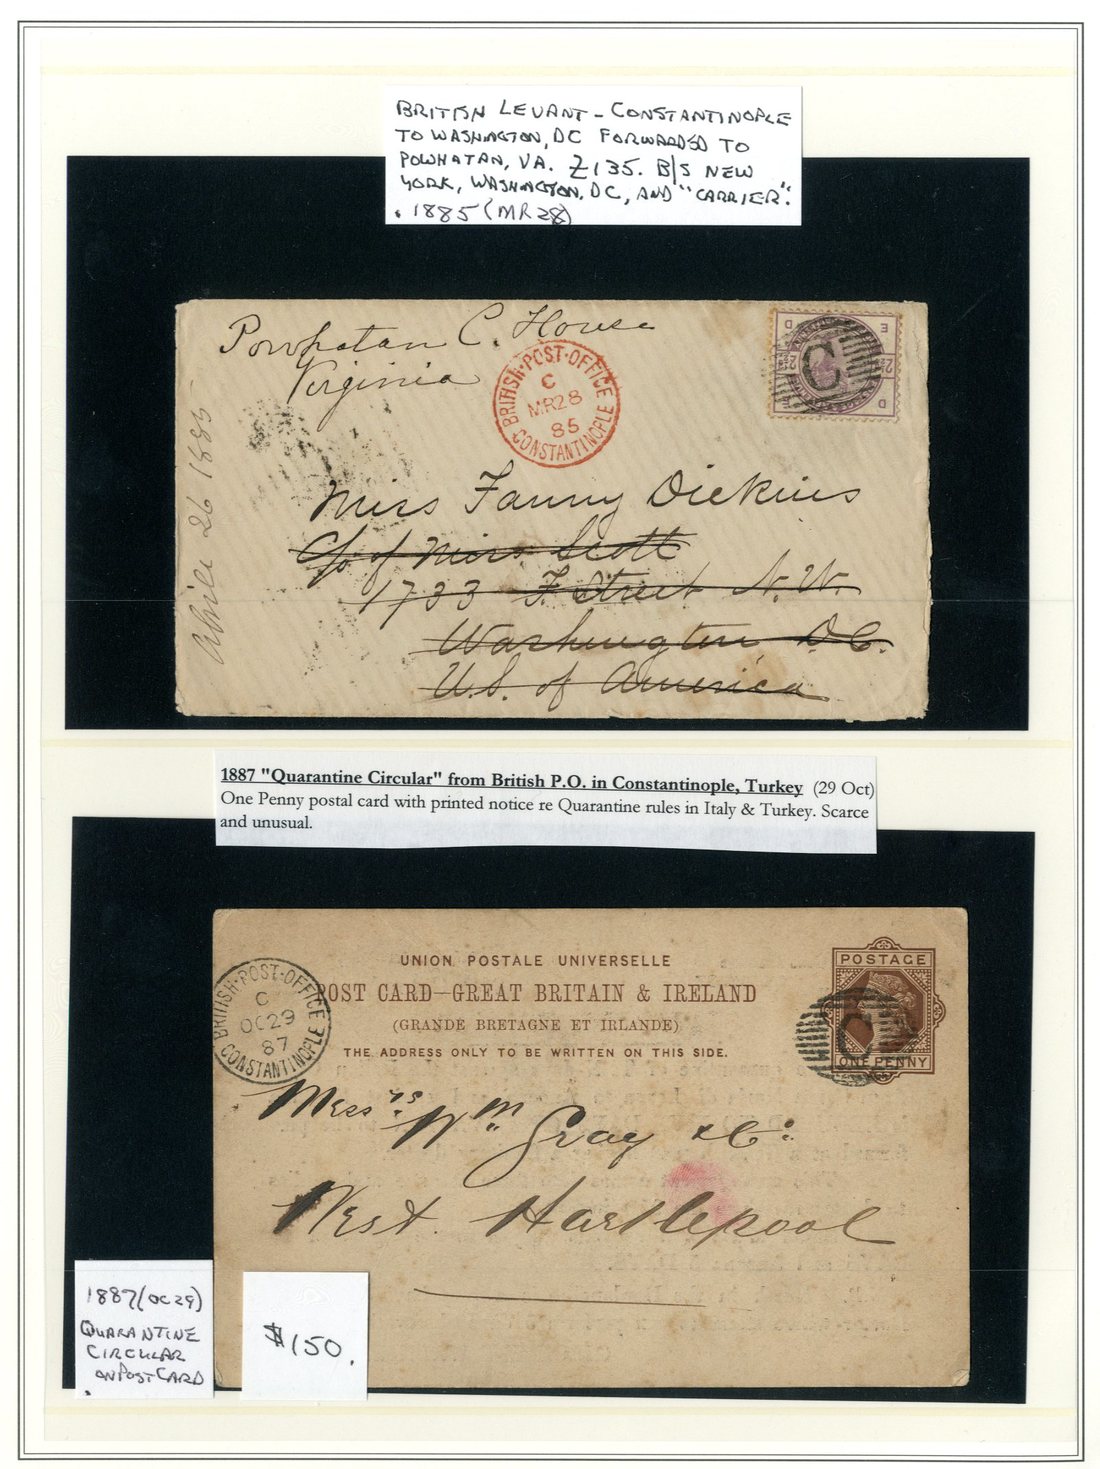 BRITISH LEVANT - CONSTANTINOPLE
TO WASHINGTON, DC FORWARDED TO
POWHATAN, VA. Z135. B/S NEW
YORK, WASHINGTON, DC, AND "CARRIER".
. 1885 (MR28)
Powhatan C. House
Virginia
BRITISH·POST·OFFICE
C
MR28
85
CONSTANTINOPLE
D E
2½ 2½
C
E D
26 1885
Miss Fanny Dickins
c/o of Miss Scott
1733 F. Street N.W.
Washington D.C.
U.S. of America
1887 "Quarantine Circular" from British P.O. in Constantinople, Turkey (29 Oct)
One Penny postal card with printed notice re Quarantine rules in Italy & Turkey. Scarce
and unusual.
UNION POSTALE UNIVERSELLE
POST CARD—GREAT BRITAIN & IRELAND
(GRANDE BRETAGNE ET IRLANDE)
THE ADDRESS ONLY TO BE WRITTEN ON THIS SIDE.
POSTAGE
C
ONE PENNY
BRITISH·POST·OFFICE
C
OC29
87
CONSTANTINOPLE
Messrs. Wm Gray & Co:
West Hartlepool
1887 (OC29)
QUARANTINE
CIRCULAR
ON POST CARD
.
$150.